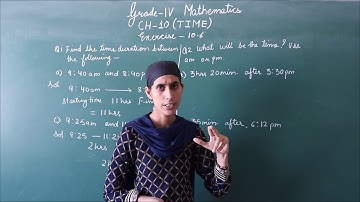 Grade-IV Mathematics
CH-10 (TIME)
Exercise - 10.6
Q1 Find the time duration between
the following -
a) 9:40am and 8:40p
Sol 9:40am → 8:40
starting time 11hrs
= 11hrs
c) 9:25am and 11
Sol 9:25 — 11:2
2hrs
Q2 what will be the time? Use
am or pm.
3hrs 20min. after 3:30pm
35min after 6:12pm